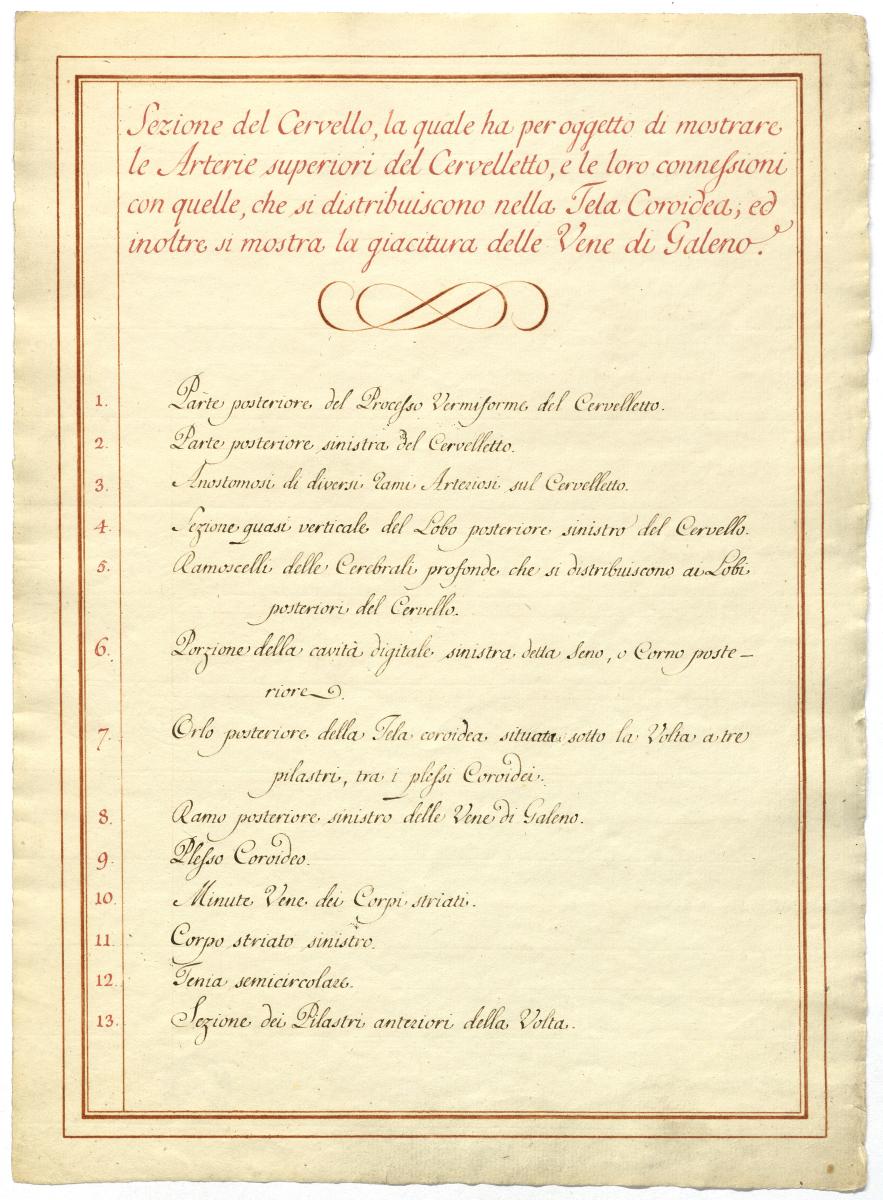 Sezione del Cervello, la quale ha per oggetto di mostrare
le Arterie superiori del Cervelletto, e le loro conneſsioni
con quelle, che si distribuiscono nella Tela Coroidea; ed
inoltre si mostra la giacitura delle Vene di Galeno.
1. Parte posteriore del Proceſso Vermiforme del Cervelletto.
2. Parte posteriore sinistra del Cervelletto.
3. Anostomosi di diversi rami Arteriosi sul Cervelletto.
4. Sezione quasi verticale del Lobo posteriore sinistro del Cervello.
5. Ramoscelli delle Cerebrali profonde che si distribuiscono ai Lobi
posteriori del Cervello.
6. Porzione della cavità digitale sinistra detta Seno, o Corno poste-
riore.
7. Orlo posteriore della Tela coroidea situata sotto la Volta a tre
pilastri, tra i pleſsi Coroidei.
8. Ramo posteriore sinistro delle Vene di Galeno.
9. Pleſso Coroideo.
10. Minute Vene dei Corpi striati.
11. Corpo striato sinistro.
12. Tenia semicircolare.
13. Sezione dei Pilastri anteriori della Volta.